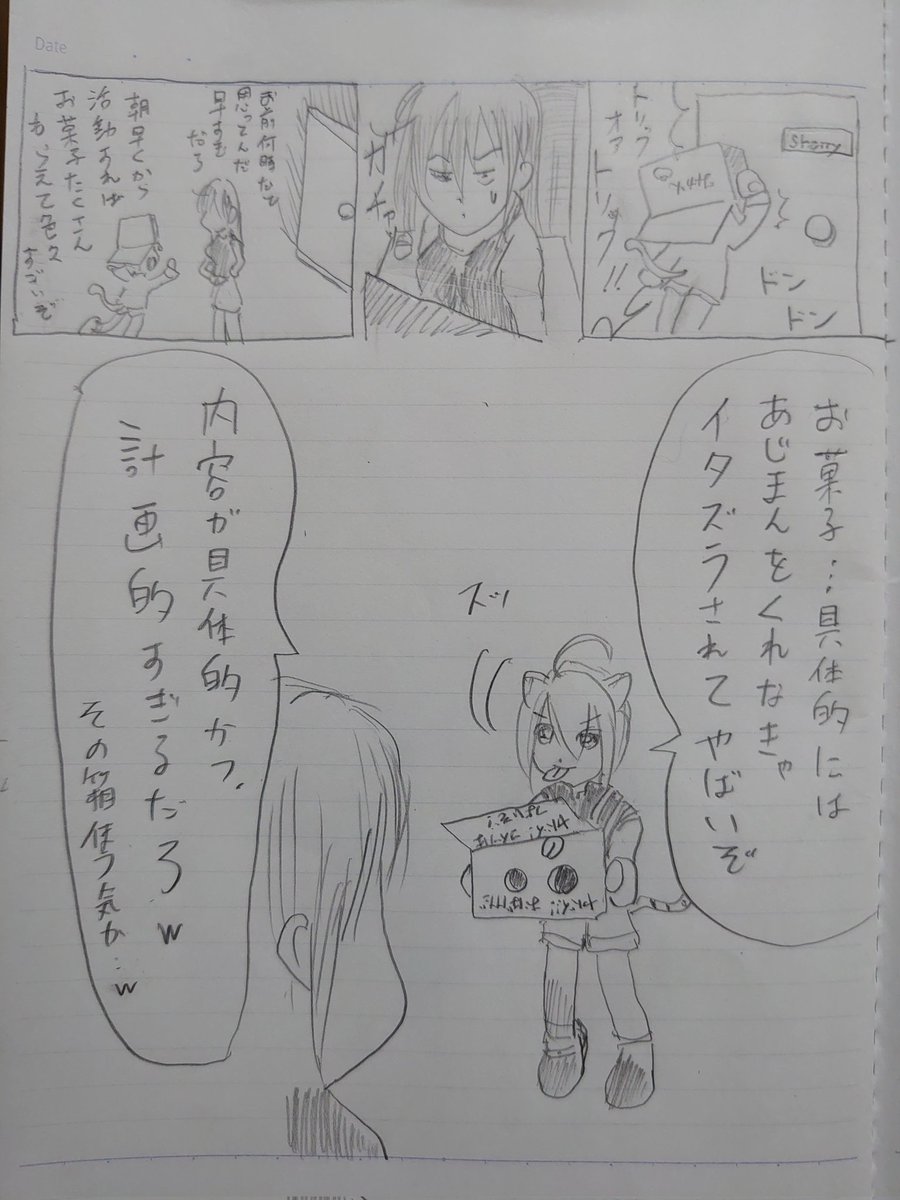 Date
トリック
オア
トリック!!
Starry
ドン
ドン
ガチャッ
お前何時だと
思ってんだ
早すぎ
だろ
朝早くから
活動すれば
お菓子たくさん
もらえて色々
すごいぞ
お菓子…具体的には
あじまんをくれなきゃ
イタズラされてやばいぞ
ズッ
内容が具体的かつ
計画的すぎるだろw
その箱使う気か…w